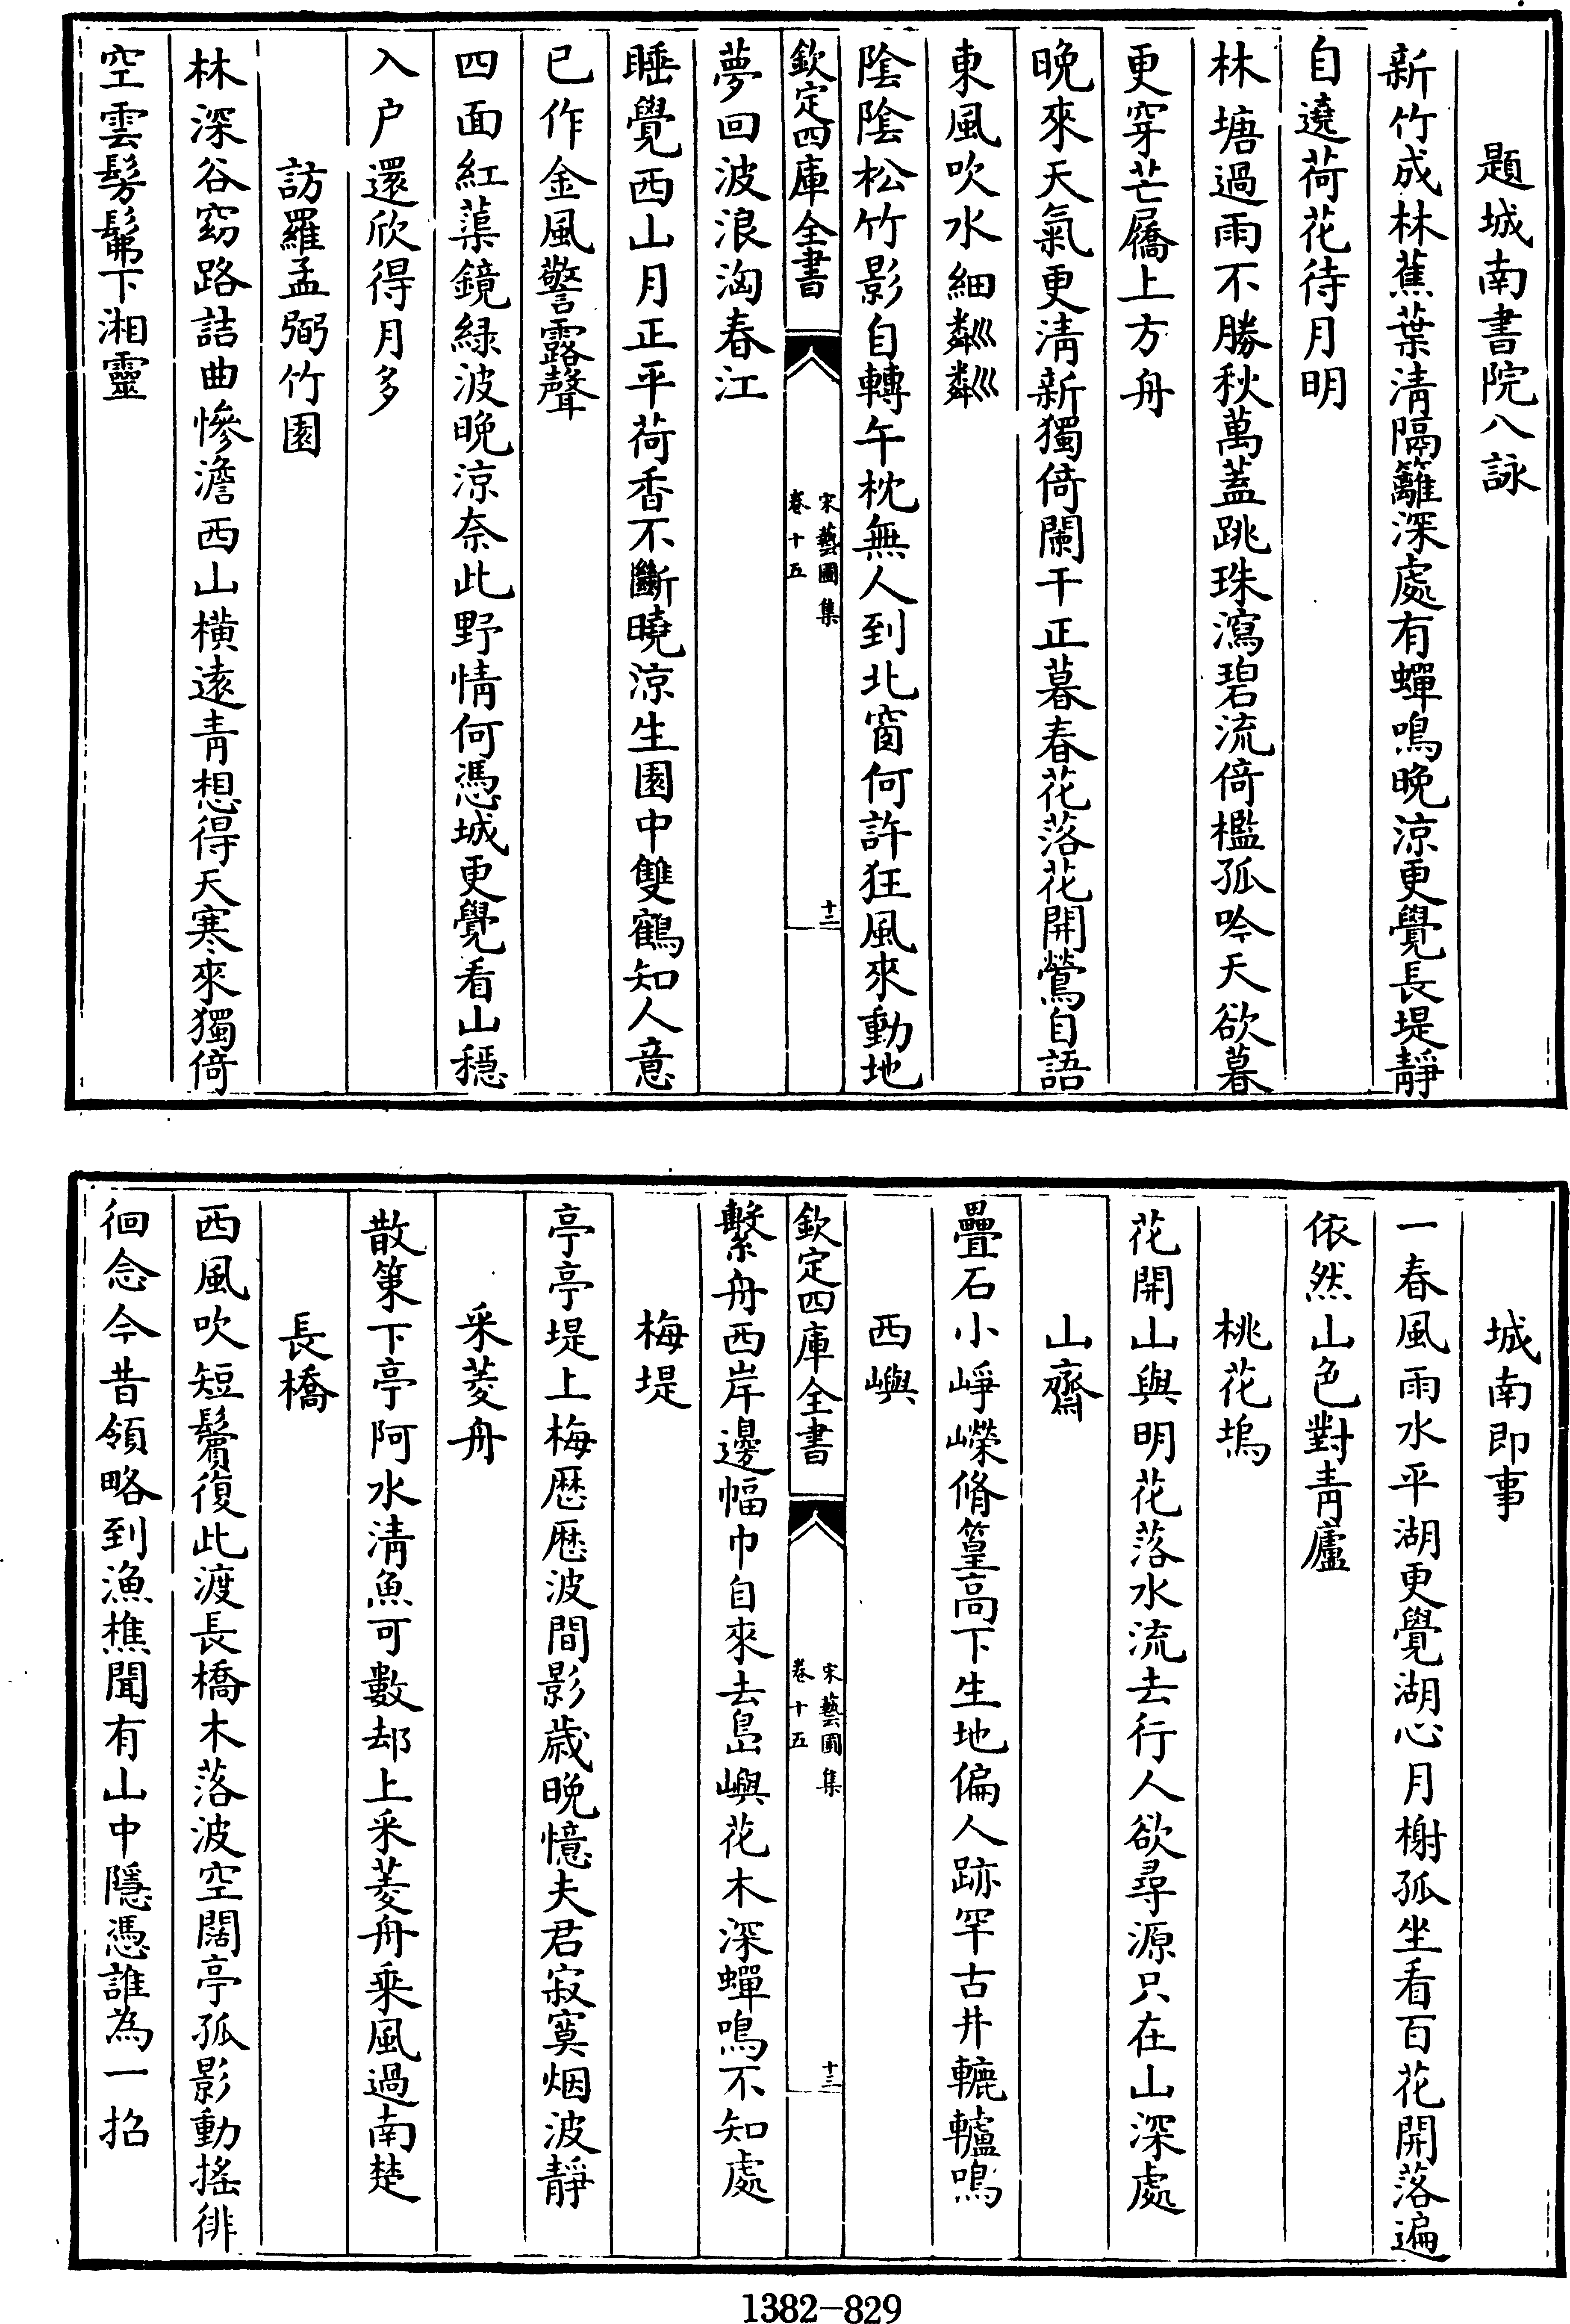 題城南書院八詠
新竹成林蕉葉清隔籬深處有蟬鳴晚涼更覺長堤靜
自遶荷花待月明
林塘過雨不勝秋萬蓋跳珠瀉碧流倚檻孤吟天欲暮
更穿芒屩上方舟
晚來天氣更清新獨倚闌干正暮春花落花開鶯自語
東風吹水細粼粼
陰陰松竹影自轉午枕無人到北窗何許狂風來動地
欽定四庫全書
宋藝圃集
卷十五
十二
夢回波浪洶春江
睡覺西山月正平荷香不斷曉涼生園中雙鶴知人意
已作金風警露聲
四面紅蕖鏡綠波晚涼奈此野情何憑城更覺看山穩
入户還欣得月多
訪羅孟弼竹園
林深谷窈路詰曲慘澹西山橫遠青想得天寒來獨倚
空雲髣髴下湘靈
城南即事
一春風雨水平湖更覺湖心月榭孤坐看百花開落遍
依然山色對青廬
桃花塢
花開山與明花落水流去行人欲尋源只在山深處
山齋
疊石小崢嶸脩篁高下生地偏人跡罕古井轆轤鳴
西嶼
欽定四庫全書
宋藝圃集
卷十五
十三
繫舟西岸邊幅巾自來去島嶼花木深蟬鳴不知處
梅堤
亭亭堤上梅歷歷波間影歲晚憶夫君寂寞烟波靜
采菱舟
散策下亭阿水清魚可數却上采菱舟乘風過南楚
長橋
西風吹短鬢復此渡長橋木落波空闊亭孤影動搖徘
徊念今昔領略到漁樵聞有山中隱憑誰為一招
1382—829